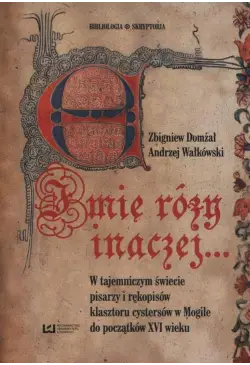 BIBLIOLOGIA Φ SKRYPTORIA
Zbigniew Domżał
Andrzej Wałkówski
Imię róży
inaczej...
W tajemniczym świecie
pisarzy i rękopisów
klasztoru cystersów w Mogile
do początków XVI wieku